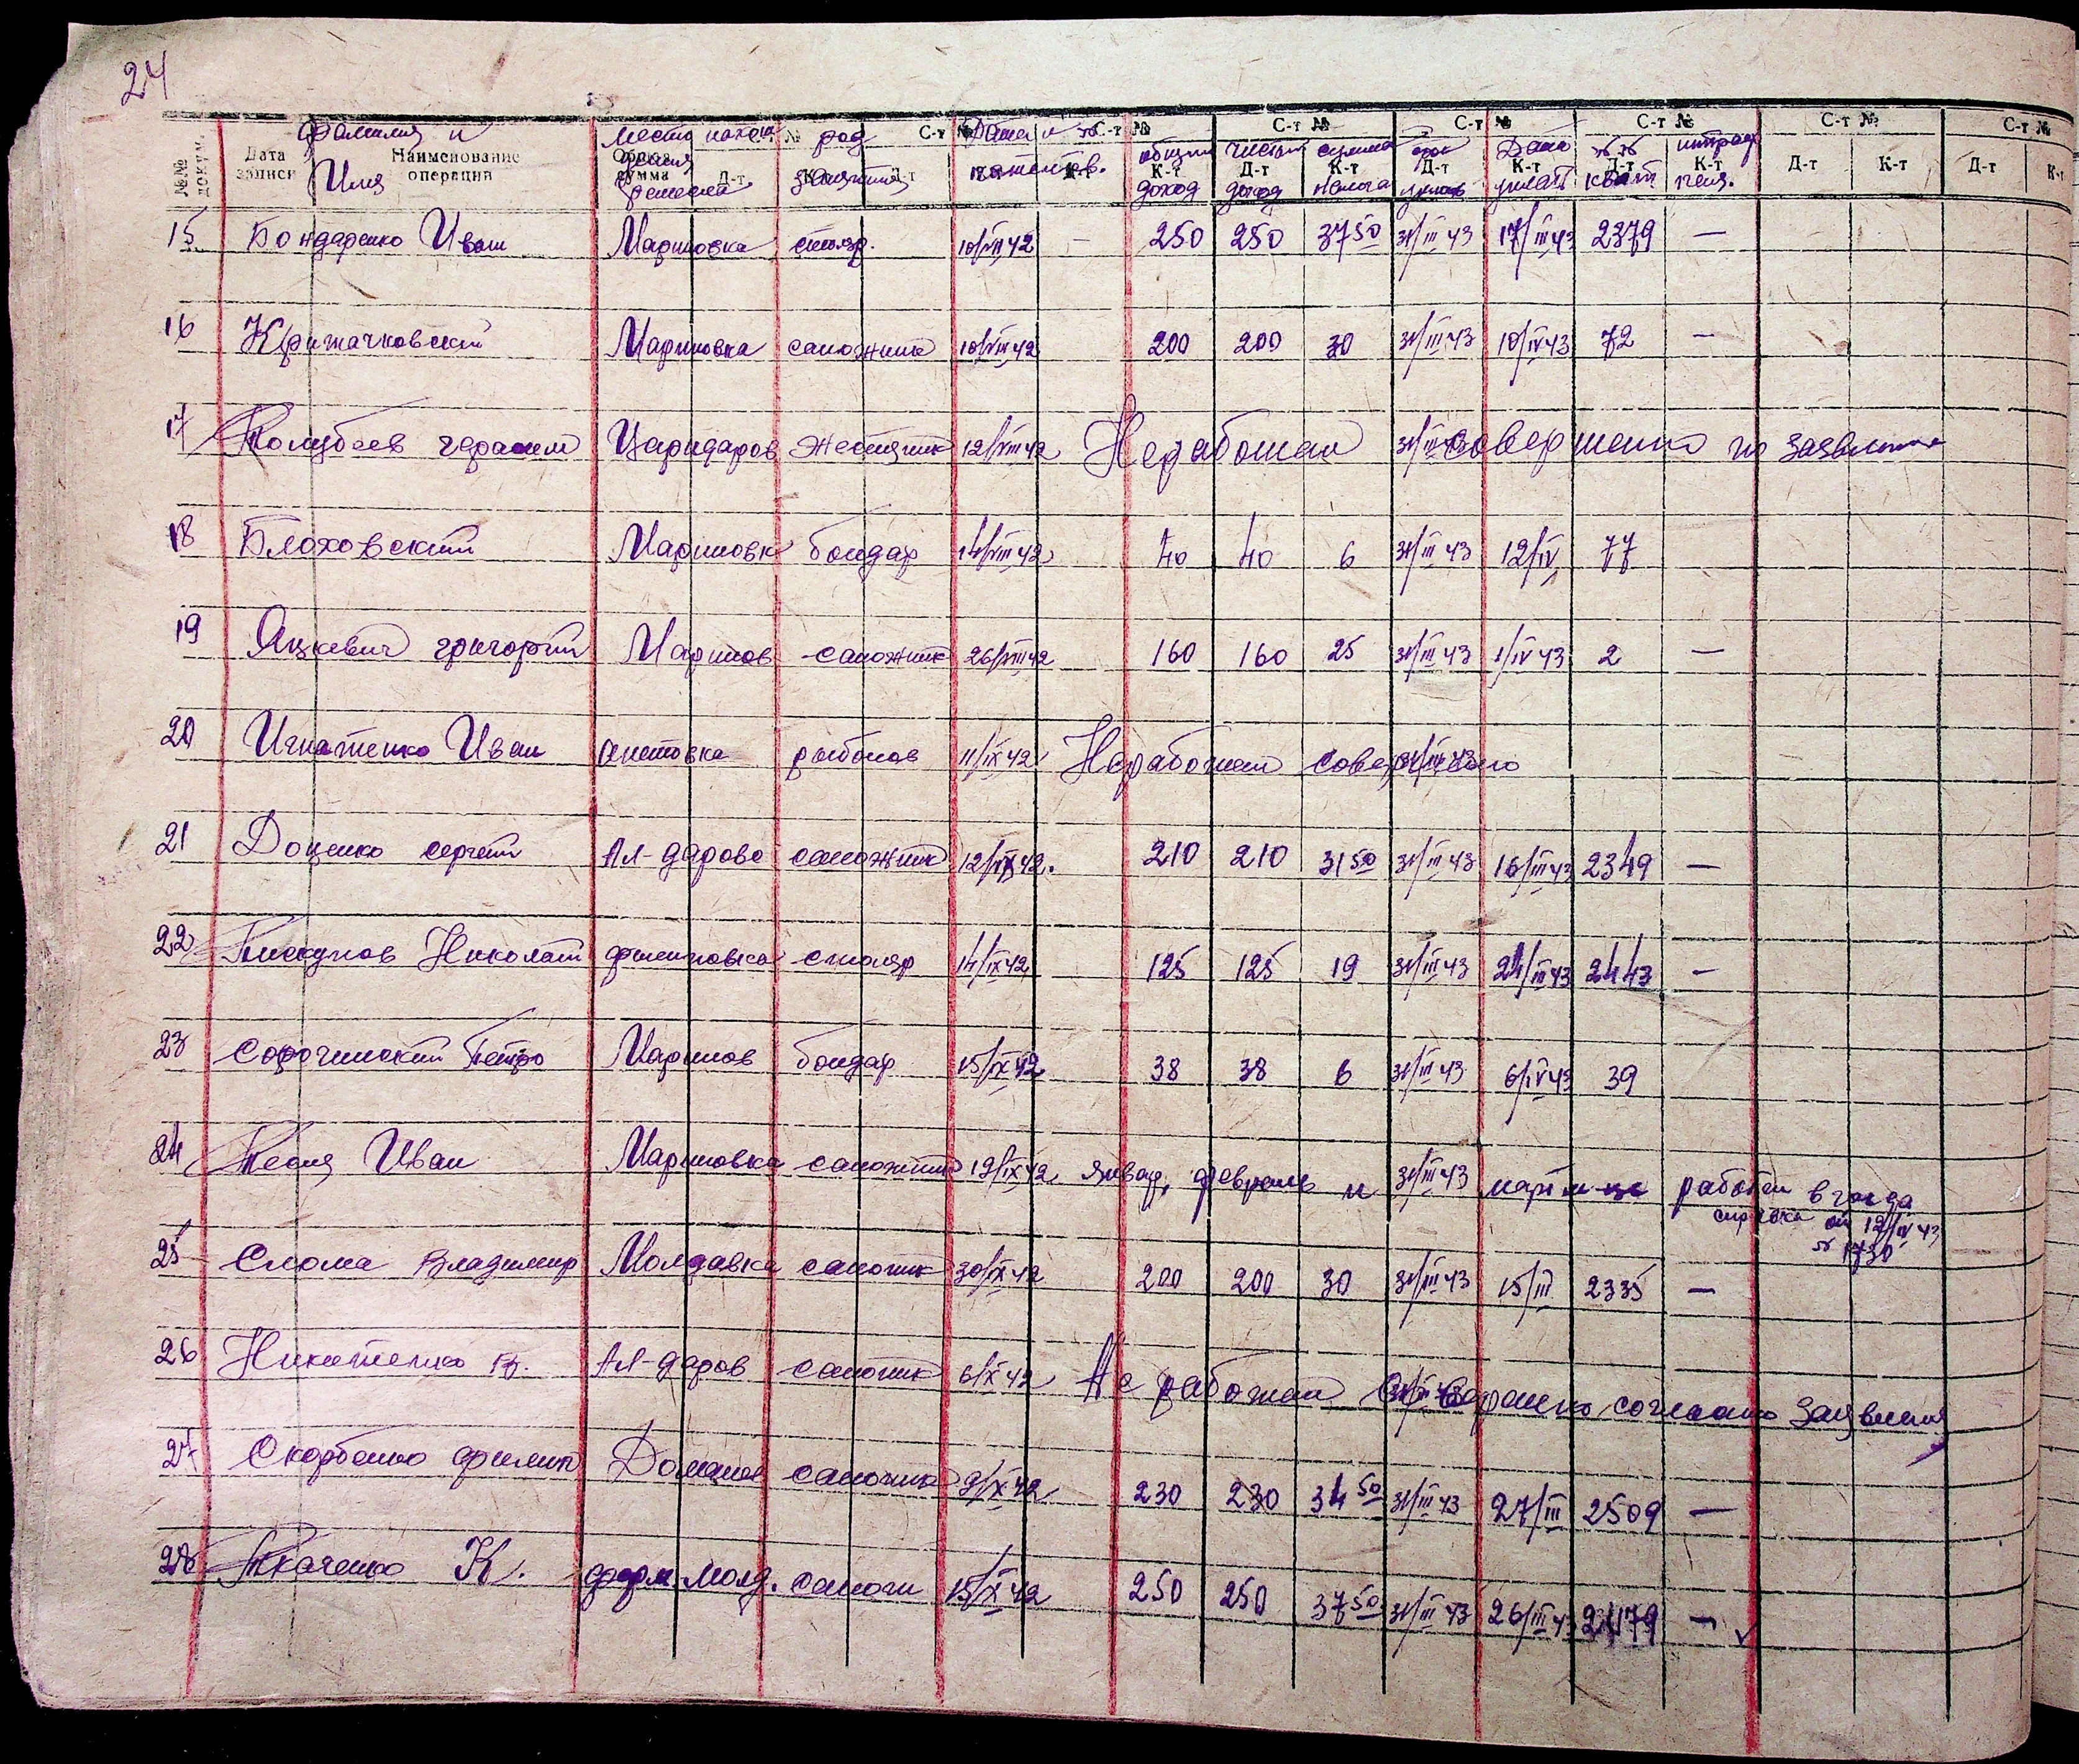 24
№№ докум. Дата записи Наименование операции Общая сумма Д-т № К-т Д-т С-т № К-т С-т № К-т Д-т С-т № К-т Д-т С-т № К-т Д-т С-т № К-т Д-т С-т № К-т Д-т С-т № К-т
фамилия и Имя место ремесла род занятия Дата и № патентов. общий доход чистый доход сумма налога срок уплат Дата уплат №№ квит штраф пеня.
15 Бондаренко Иван Мариновка столяр. 10/VIII 42 — 250 250 37 50 31/III 43 17/III 43 2379 —
16 Крижачковский Мариновка сапожник 10/VIII 42 200 200 30 31/III 43 10/IV 43 72 —
17 Голубев герасим Царидаров Жестяник 12/VIII 42 Неработал 31/III совершенно по заявлению
18 Блоховский Мариновк бондар 14/VIII 42 40 40 6 31/III 43 12/IV 77
19 Яцкевич григорий Маринов сапожник 26/VIII 42 160 160 25 31/III 43 1/IV 43 2 —
20 Игнатенко Иван Анетовка рыболов 11/IX 42 Неработал совершенно 31/III 43
21 Доценко сергей Ал-дарово сапожник 12/IX 42. 210 210 31 50 31/III 43 16/III 43 2349 —
22 Пискунов Николай филиповка столяр 14/IX 42 125 125 19 31/III 43 24/III 43 2443 —
23 Сорочинский Петро Маринов бондар 15/IX 42 38 38 6 31/III 43 6/IV 43 39
24 Тесля Иван Мариновка сапожник 19/IX 42 январ, февраль и 31/III 43 март не работал в
справка от 12/IV 43
№ 1730
25 Слома Владимир Молдавка сапожник 30/IX 42 200 200 30 31/III 43 15/III 2335 —
26 Никитенко В. Ал-даров сапожник 6/X 42 Не работал совершено согласно заявления
27 Скорбенко филип Доманов сапожник 9/X 42 230 230 34 50 31/III 43 27/III 2509 —
28 Ткаченко К. ферм. молд. сапожн 15/X 42 250 250 37 50 31/III 43 26/III 43 2479 —